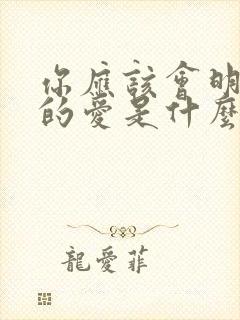 你應該會明
的愛是什麼
龍愛菲